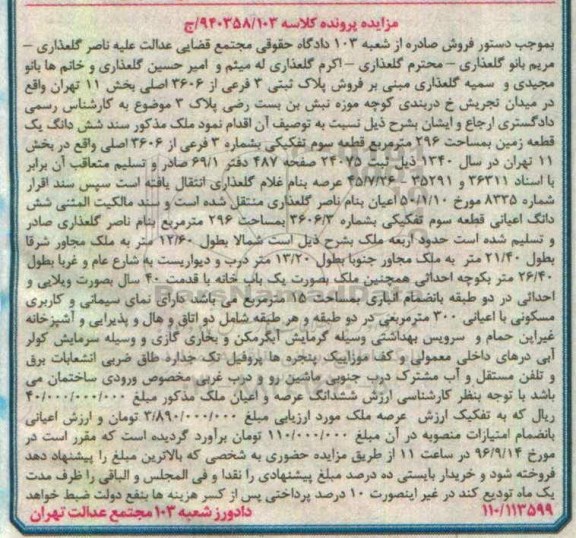 مزایده پرونده کلاسه ۹۴۰۳۵۸/۱۰۳/ج
بموجب دستور فروش صادره از شعبه ۱۰۳ دادگاه حقوقی مجتمع قضایی عدالت علیه ناصر گلعذاری –
مریم بانو گلعذاری – محترم گلعذاری – اکرم گلعذاری له میثم و امیر حسین گلعذاری و خانم ها بانو
مجیدی و سمیه گلعذاری مبنی بر فروش پلاک ثبتی ۳ فرعی از ۳۶۰۶ اصلی بخش ۱۱ تهران واقع
در میدان تجریش خ دربندی کوچه موزه نبش بن بست رضی پلاک ۳ موضوع به کارشناس رسمی
دادگستری ارجاع و ایشان بشرح ذیل نسبت به توصیف آن اقدام نمود ملک مذکور سند شش دانگ یک
قطعه زمین بمساحت ۲۹۶ مترمربع قطعه سوم تفکیکی بشماره ۳ فرعی از ۳۶۰۶ اصلی واقع در بخش
۱۱ تهران در سال ۱۳۴۰ ذیل ثبت ۲۴۰۷۵ صفحه ۴۸۷ دفتر ۶۹/۱ صادر و تسلیم متعاقب آن برابر
با اسناد ۳۶۳۱۱ و ۳۵۲۹۱ – ۴۵/۷/۲۶ عرصه بنام غلام گلعذاری انتقال یافته است سپس سند اقرار
شماره ۸۳۳۵ مورخ ۵۰/۱/۱۰ اعیان بنام ناصر گلعذاری منتقل شده است و سند مالکیت المثنی شش
دانگ اعیانی قطعه سوم تفکیکی بشماره ۳۶۰۶/۳ بمساحت ۲۹۶ مترمربع بنام ناصر گلعذاری صادر
و تسلیم شده است حدود اربعه ملک بشرح ذیل است شمالا بطول ۱۲/۶۰ متر به ملک مجاور شرقا
بطول ۲۱/۴۰ متر به ملک مجاور جنوبا بطول ۱۳/۲۰ متر درب و دیواریست به شارع عام و غربا بطول
۲۶/۴۰ متر بکوچه احداثی همچنین ملک بصورت یک باب خانه با قدمت ۴۰ سال بصورت ویلایی و
احداثی در دو طبقه بانضمام انباری بمساحت ۱۵ مترمربع می باشد دارای نمای سیمانی و کاربری
مسکونی با اعیانی ۳۰۰ مترمربعی در دو طبقه و هر طبقه شامل دو اتاق و هال و پذیرایی و آشپزخانه
غیراپن حمام و سرویس بهداشتی وسیله گرمایش آبگرمکن و بخاری گازی و وسیله سرمایش کولر
آبی درهای داخلی معمولی و کف موزاییک پنجره ها پروفیل تک جداره طاق ضربی انشعابات برق
و تلفن مستقل و آب مشترک درب جنوبی ماشین رو و درب غربی مخصوص ورودی ساختمان می
باشد با توجه بنظر کارشناسی ارزش ششدانگ عرصه و اعیان ملک مذکور مبلغ ۴۰/۰۰۰/۰۰۰/۰۰۰
ریال که به تفکیک ارزش عرصه ملک مورد ارزیابی مبلغ ۳/۸۹۰/۰۰۰/۰۰۰ تومان و ارزش اعیانی
بانضمام امتیازات منصوبه در آن مبلغ ۱۱۰/۰۰۰/۰۰۰ تومان برآورد گردیده است که مقرر است در
مورخ ۹۶/۹/۱۴ در ساعت ۱۱ از طریق مزایده حضوری به شخصی که بالاترین مبلغ را پیشنهاد دهد
فروخته شود و خریدار بایستی ده درصد مبلغ پیشنهادی را نقدا و فی المجلس و الباقی را ظرف مدت
یک ماه تودیع کند در غیر اینصورت ۱۰ درصد پرداختی پس از کسر هزینه ها بنفع دولت ضبط خواهد
۱۱۰/۱۱۳۵۹۹ دادورز شعبه ۱۰۳ مجتمع عدالت تهران